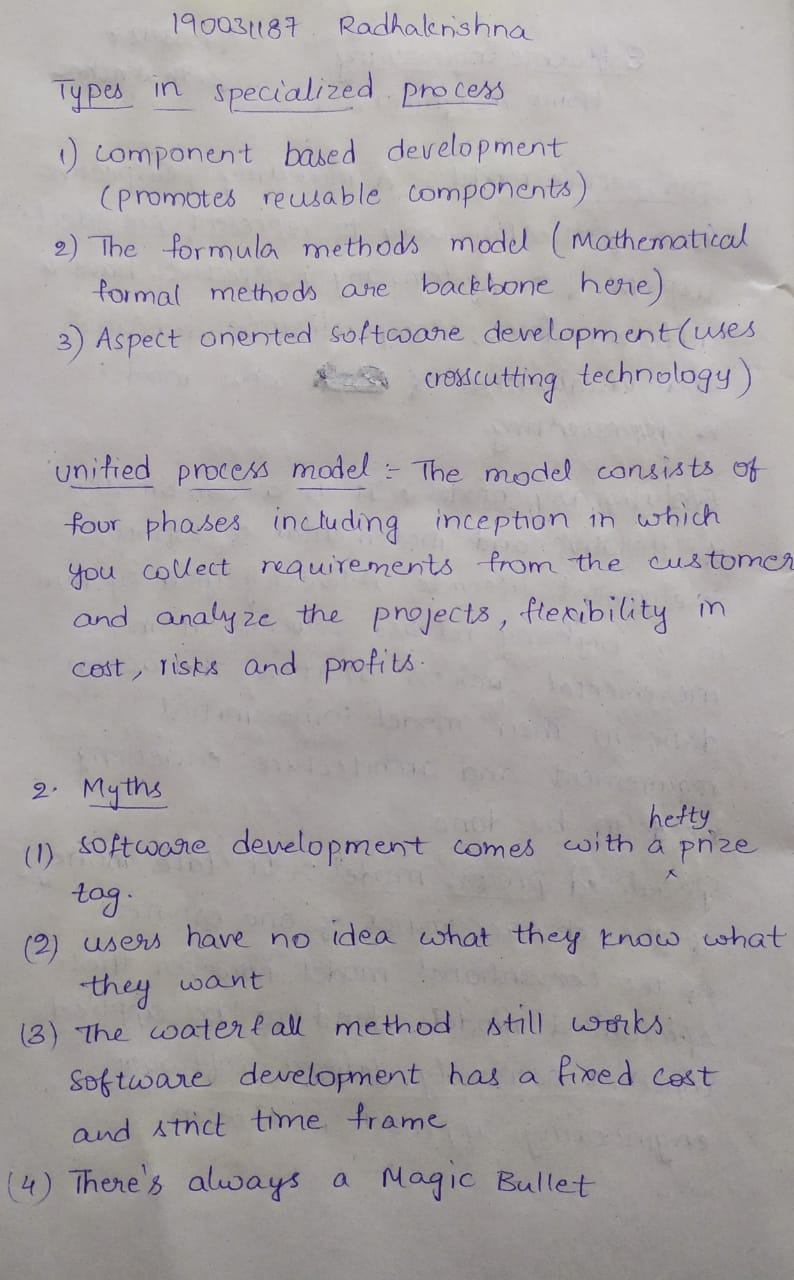 190031187 Radhakrishna
Types in specialized process
1) component based development
(promotes reusable components)
2) The formula methods model (Mathematical
formal methods are backbone here)
3) Aspect oriented software development (uses
crosscutting technology)
unified process model :- The model consists of
four phases including inception in which
you collect requirements from the customer
and analyze the projects, flexibility in
cost, risks and profits.
2. Myths
hefty
(1) software development comes with a prize
tag.
(2) users have no idea what they know what
they want
(3) The waterfall method still works.
Software development has a fixed cost
and strict time frame
(4) There's always a Magic Bullet